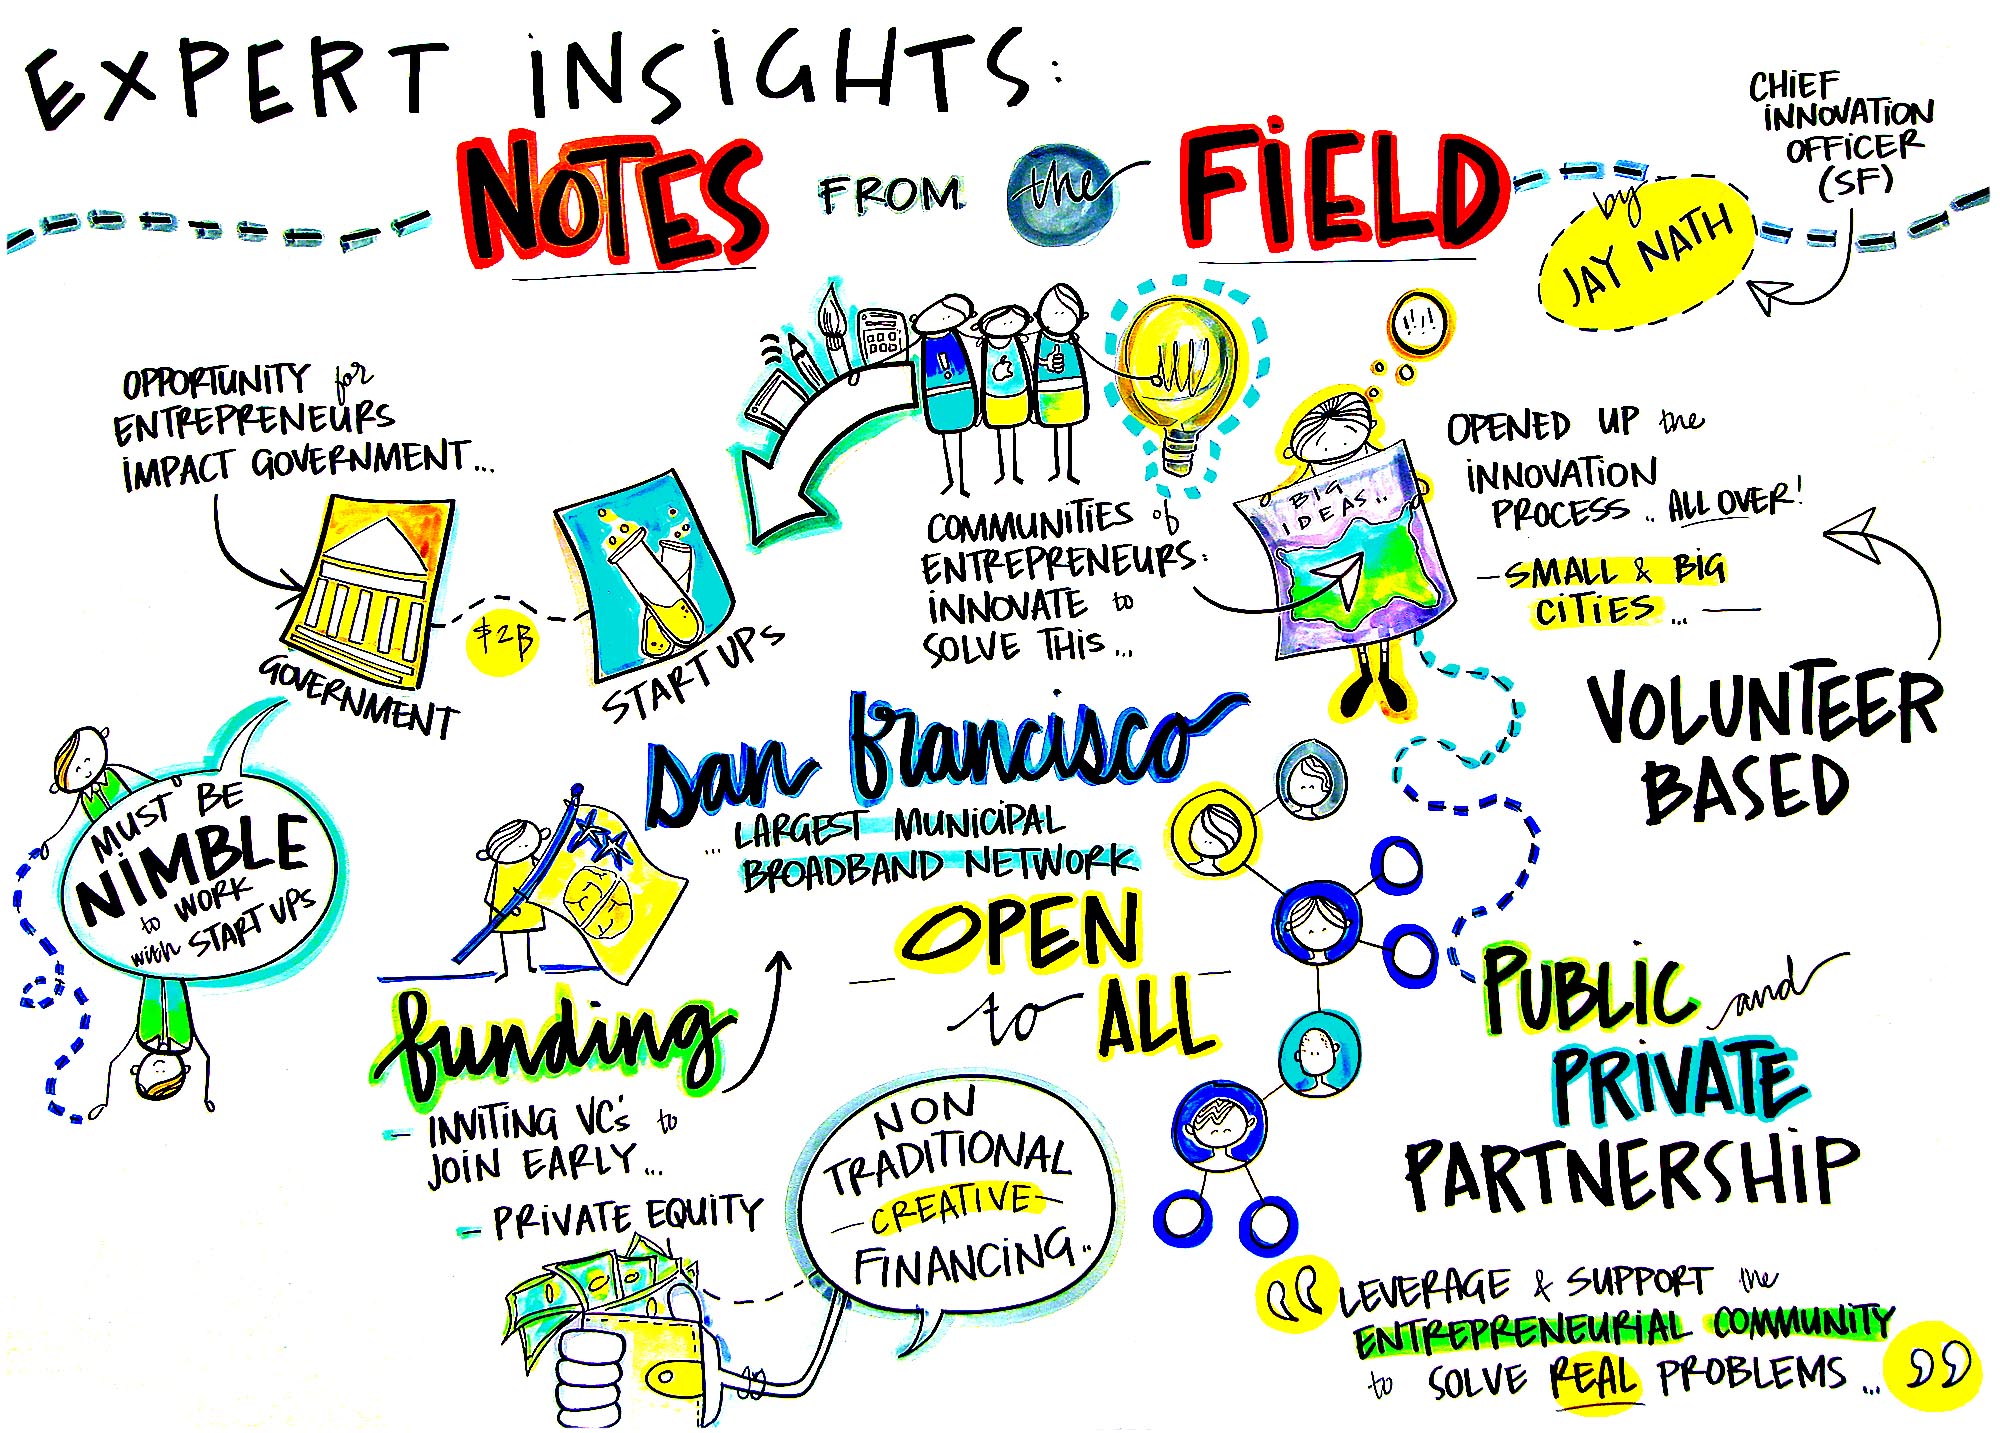 EXPERT INSIGHTS:
NOTES FROM the FIELD
by
JAY NATH
CHIEF
INNOVATION
OFFICER
(SF)
OPPORTUNITY for
ENTREPRENEURS
IMPACT GOVERNMENT...
GOVERNMENT
$2B
START UPS
COMMUNITIES of
ENTREPRENEURS:
INNOVATE to
SOLVE THIS...
BIG
IDEAS..
!!!
OPENED UP the
INNOVATION
PROCESS.. ALL OVER!
- SMALL & BIG
CITIES... -
VOLUNTEER
BASED
MUST BE
NIMBLE
to WORK
with START UPS
san francisco
... LARGEST MUNICIPAL
BROADBAND NETWORK
OPEN
- to ALL -
funding
- INVITING VC's to
JOIN EARLY...
- PRIVATE EQUITY
NON
TRADITIONAL
- CREATIVE -
FINANCING..
PUBLIC and
PRIVATE
PARTNERSHIP
“LEVERAGE & SUPPORT the
ENTREPRENEURIAL COMMUNITY
to SOLVE REAL PROBLEMS...”